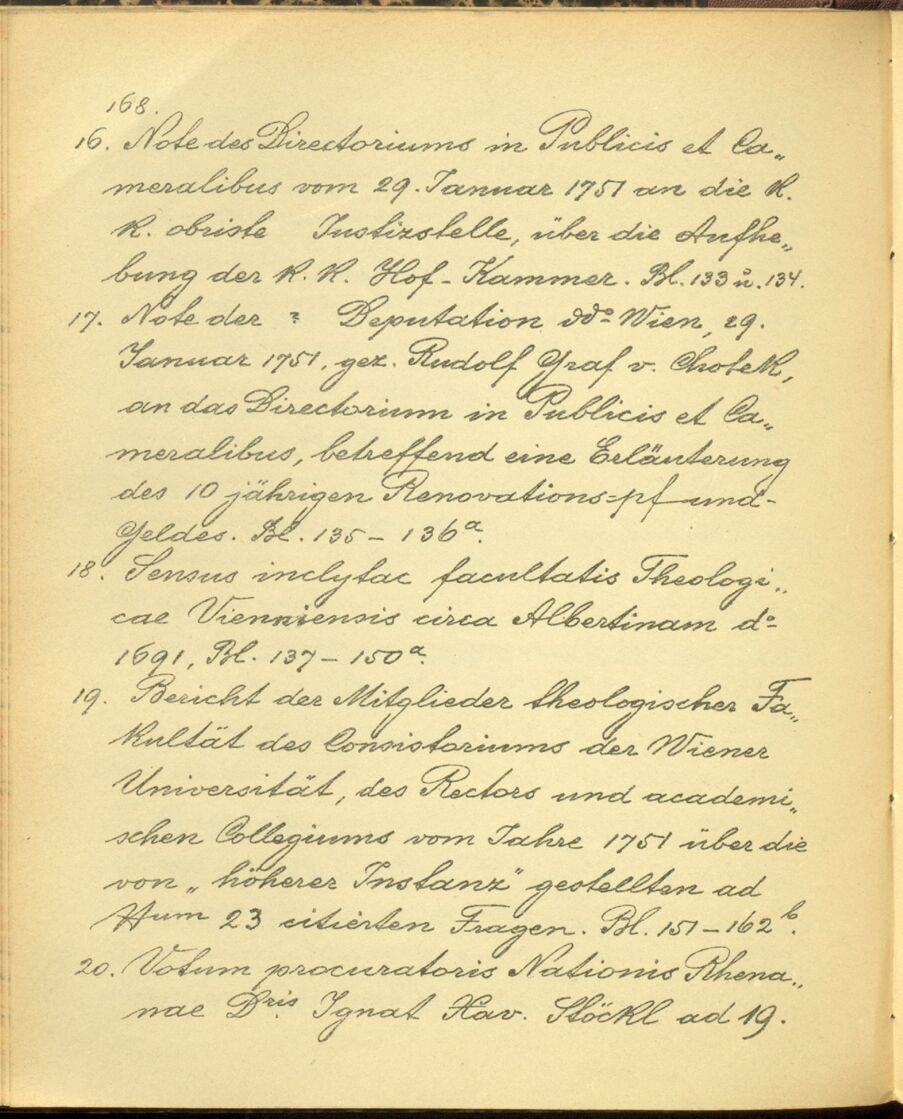 168.
16. Note des Directoriums in Publicis et Ca„
meralibus vom 29. Januar 1751 an die K.
K. obriste Justizstelle, über die Aufhe„
bung der K. K. Hof-Kammer. Bl. 133 u. 134.
17. Note der ? Deputation ddo Wien, 29.
Januar 1751, gez. Rudolf Graf v. Chotek,
an das Directorium in Publicis et Ca„
meralibus, betreffend eine Erläuterung
des 10 jährigen Renovations=pfund-
Geldes. Bl. 135 – 136a.
18. Sensus inclytae facultatis Theologi„
cae Viennensis circa Albertinam do
1691, Bl. 137 – 150a.
19. Bericht der Mitglieder theologischer Fa„
kultät des Consistoriums der Wiener
Universität, des Rectors und academi„
schen Collegiums vom Jahre 1751 über die
von „höherer Instanz" gestellten ad
Num 23 citierten Fragen. Bl. 151 – 162b.
20. Votum procuratoris Nationis Rhena„
nae Dris. Ignat Xav. Stöckl ad 19.